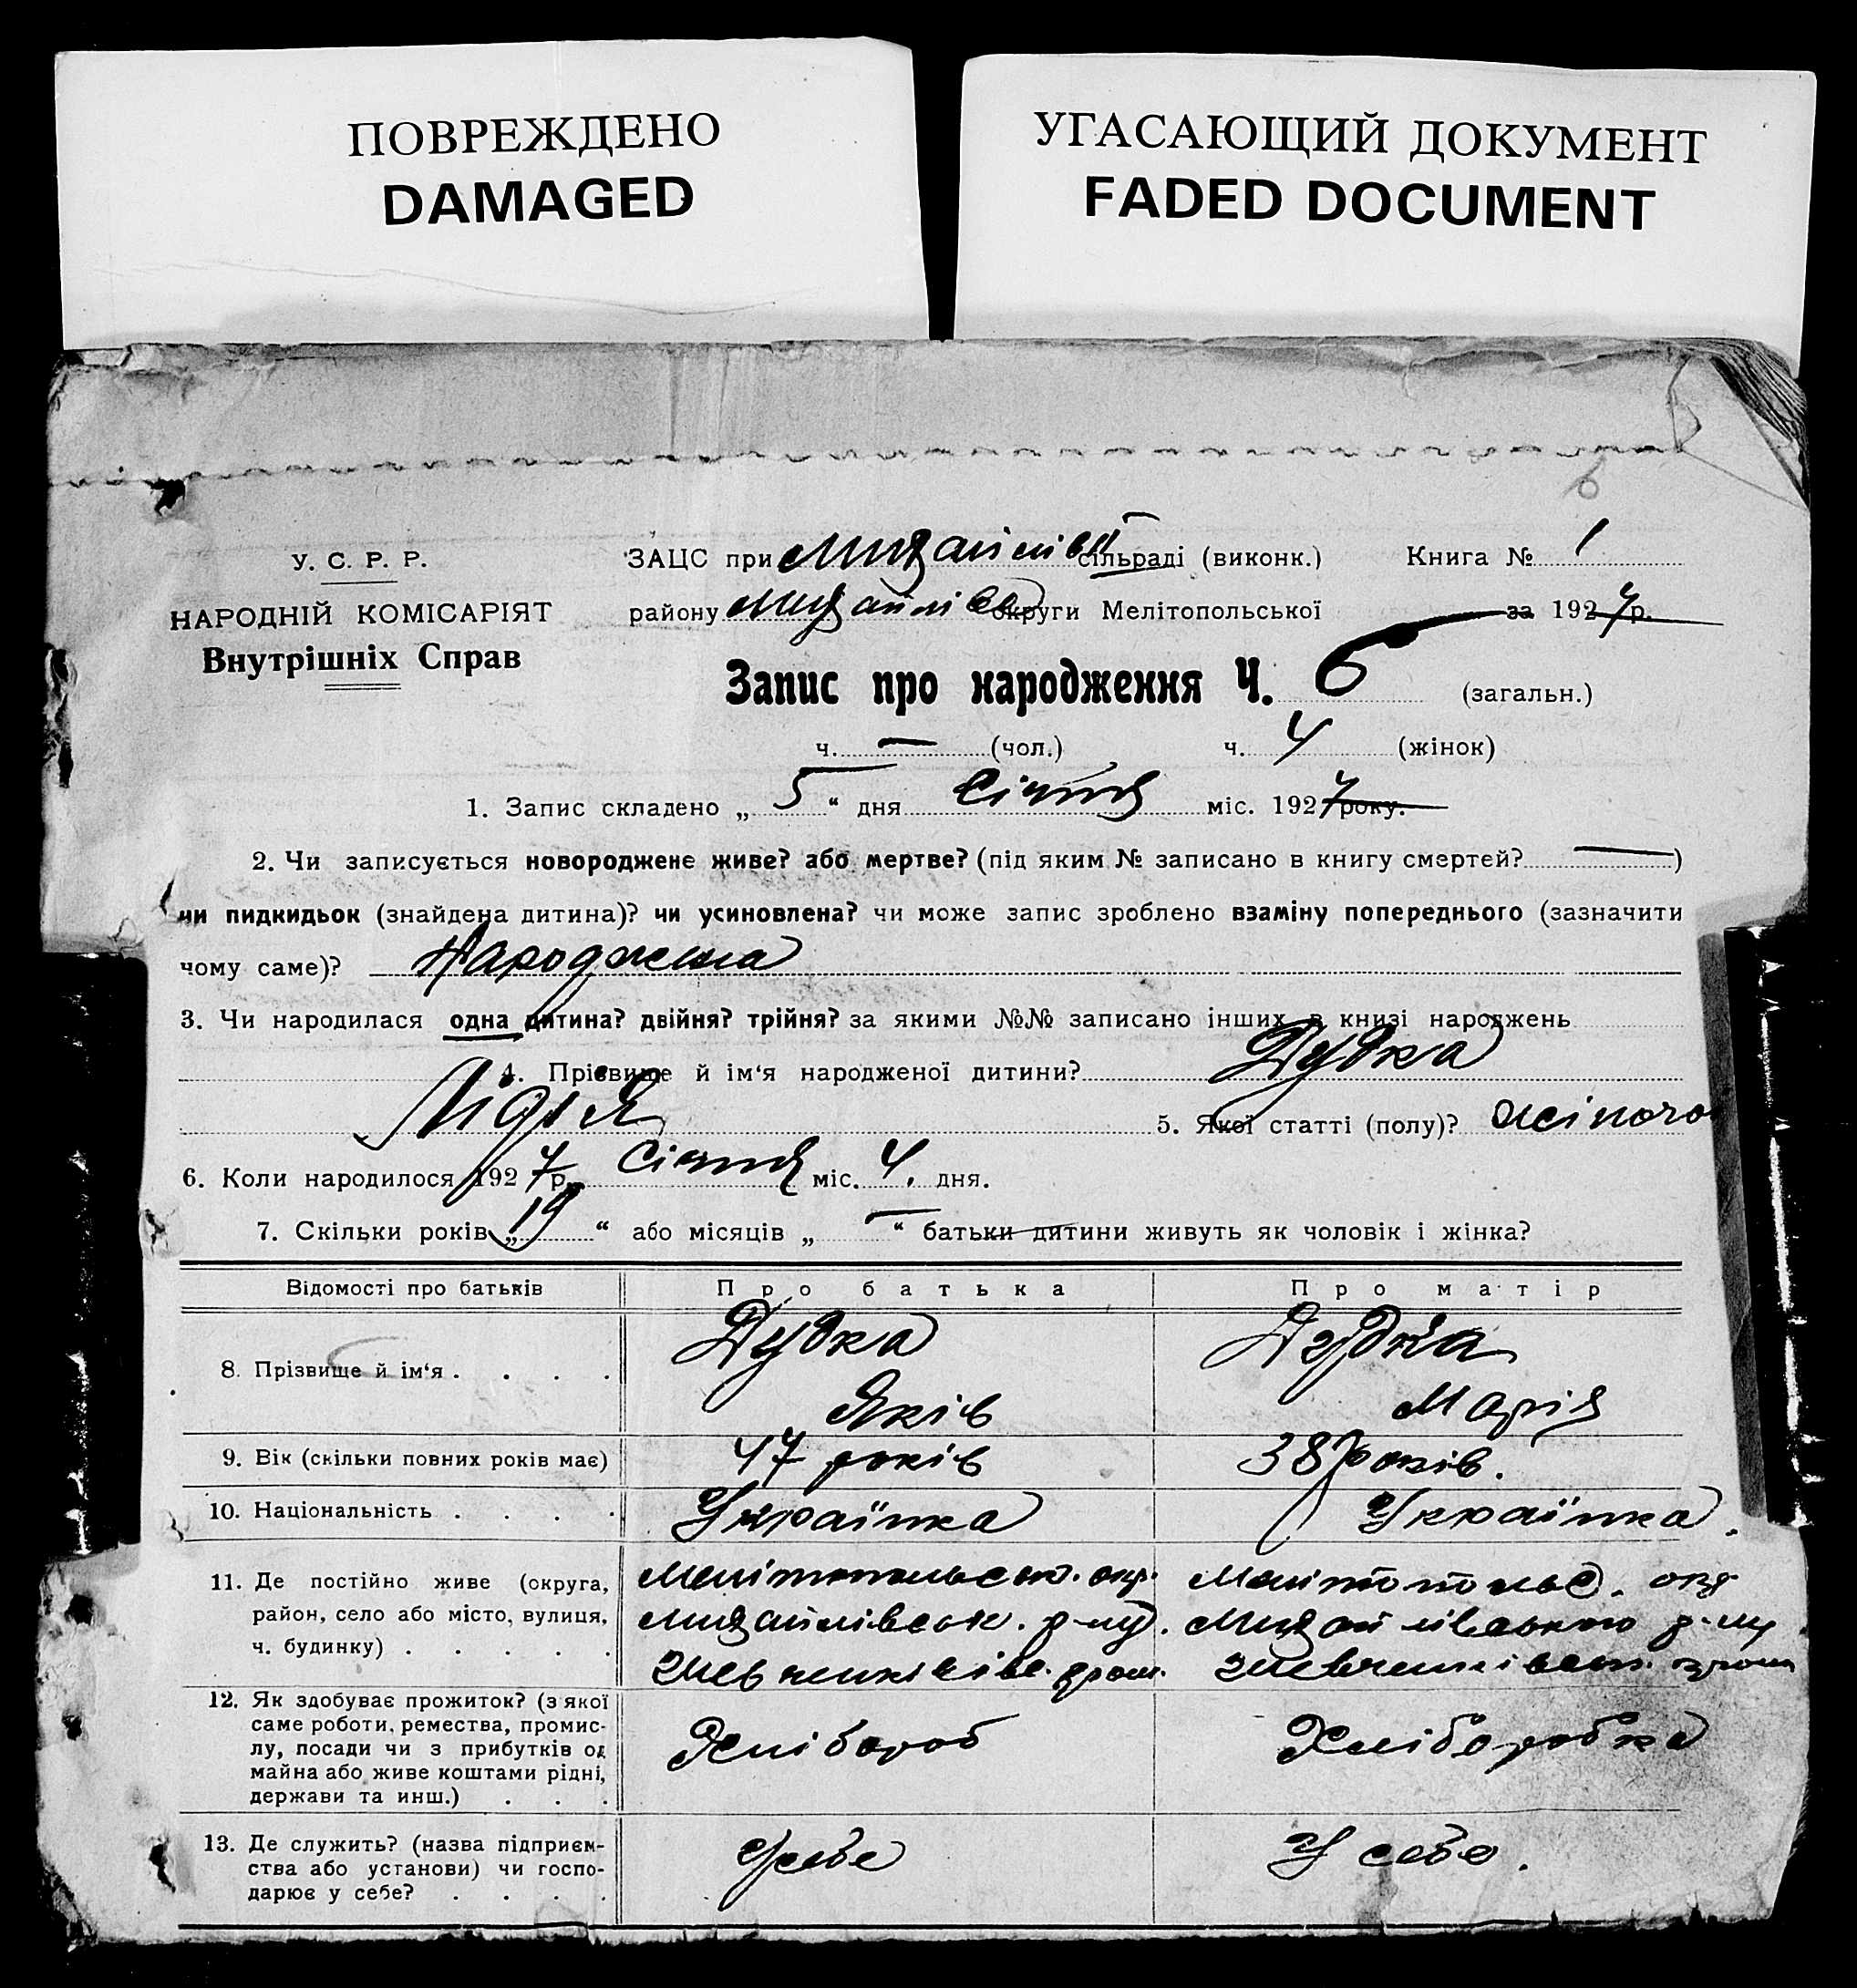 ПОВРЕЖДЕНО
DAMAGED
УГАСАЮЩИЙ ДОКУМЕНТ
FADED DOCUMENT
6
У. С. Р. Р.
НАРОДНІЙ КОМІСАРІЯТ
Внутрішніх Справ
ЗАЦС при Михайлівській сільраді (виконк.) Книга № 1
району Михайлівсь округи Мелітопольської за 1927 р.
Запис про народження Ч. 6 (загальн.)
ч. — (чол.) ч. 4 (жінок)
1. Запис складено „ 5 “ дня Січня міс. 1927 року.
2. Чи записується новороджене живе? або мертве? (під яким № записано в книгу смертей? — )
чи пидкидьок (знайдена дитина)? чи усиновлена? чи може запис зроблено взаміну попереднього (зазначити
чому саме)? Народжена
3. Чи народилася одна дитина? двійня? трійня? за якими №№ записано інших в книзі народжень
4. Прізвище й ім‘я народженої дитини? Дудка
Лідія 5. Якої статті (полу)? жіночо
6. Коли народилося 1927 р. Січня міс. 4. дня.
7. Скільки років „ 19 “ або місяців „ — “ батьки дитини живуть як чоловік і жінка?
Відомості про батьків Про батька Про матір
8. Прізвище й ім‘я . . . . Дудка Дудка
Яків Марія
9. Вік (скільки повних років має) 47 років 38 років.
10. Національність . . . . Українка Українка.
11. Де постійно живе (округа, Мелітопольськ. окр. Мелітопольс. окр
район, село або місто, вулиця, Михайлівськ. р-ну. Михайлівського р-ну.
ч. будинку) . . . . . Шевченківс. гром. Шевченківськ. гром
12. Як здобуває прожиток? (з якої
саме роботи, ремества, промис-
лу, посади чи з прибутків од Хлібороб Хліборобка
майна або живе коштами рідні,
держави та инш.) . . .
13. Де служить? (назва підприєм- У себе У себе.
ства або установи) чи госпо-
дарює у себе? . . . .